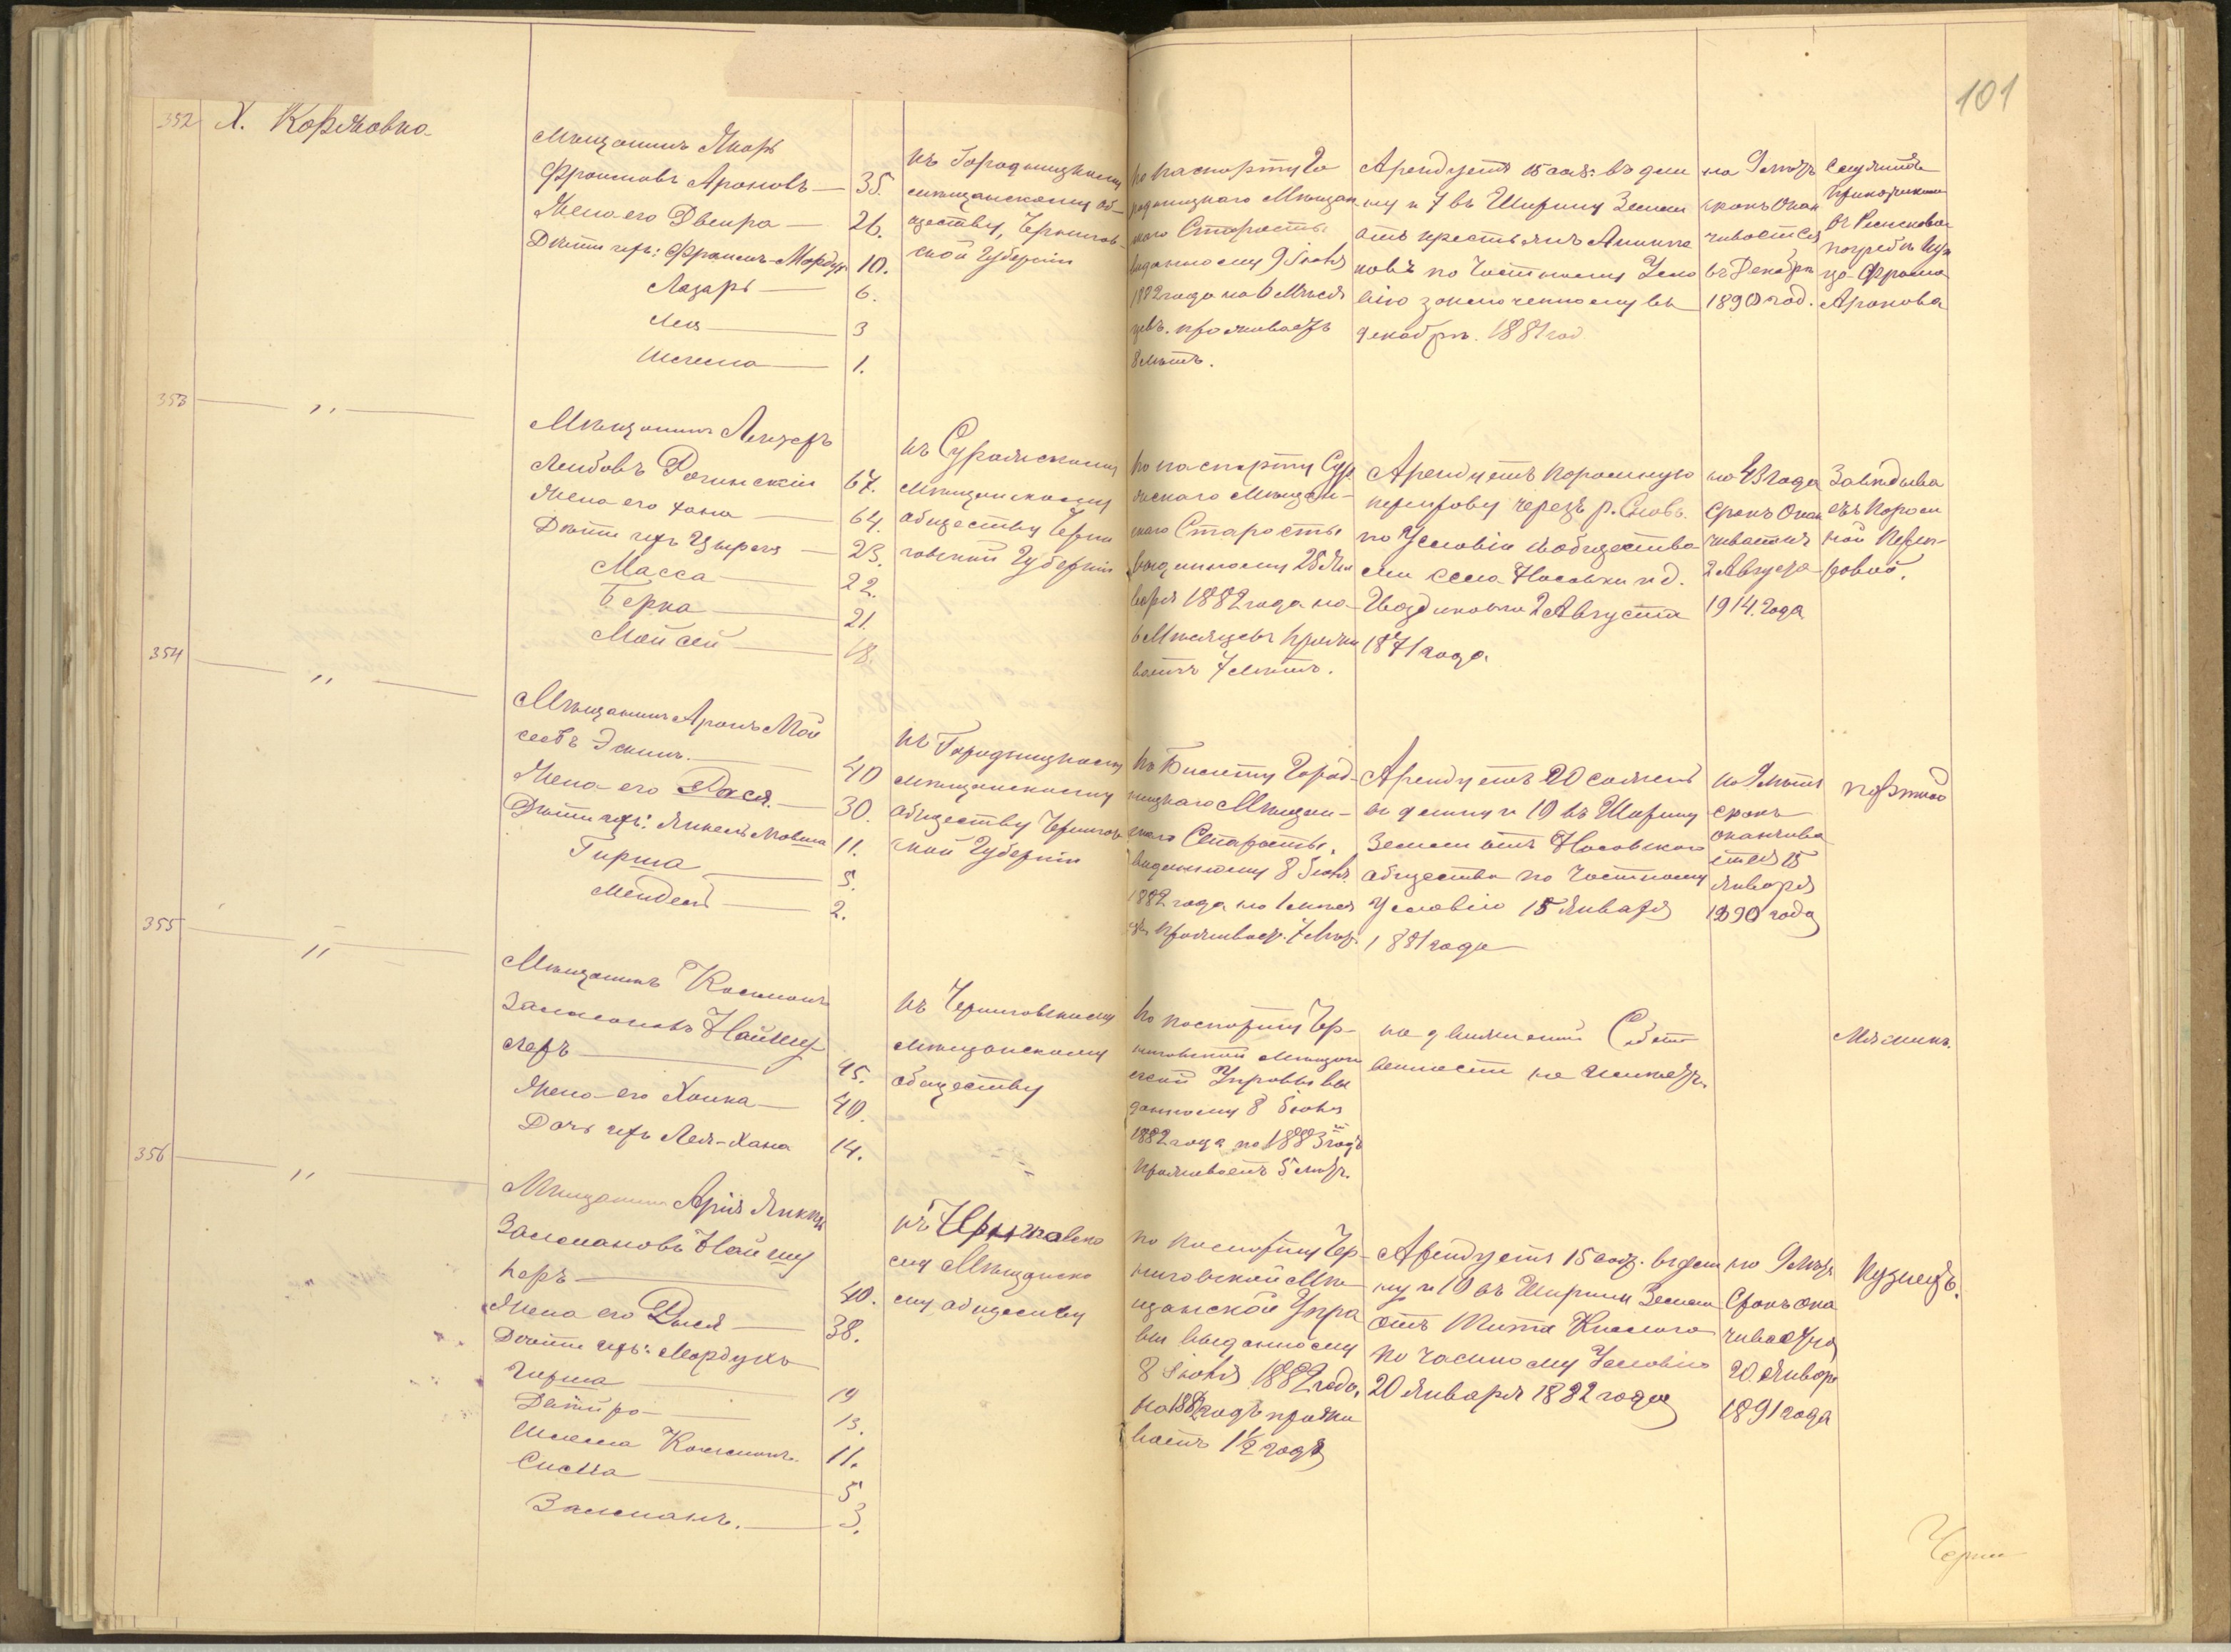 101
352 Х. Коржовка
Мѣщанинъ Якорь
Фроимовъ Ароновъ — 35.
Жена его Двейра — 26.
Дѣти ихъ: Фроимъ-Мордух 10.
Лазарь — 6.
Лея — 3
1.
къ Городницкому
мѣщанскому об-
ществу, Чернигов-
ской Губерніи
по паспорту Го
родницкаго Мѣщан
скаго Старосты
выданному 9 Іюня
1882 года на 6 Мѣся
цевъ. проживаетъ
8 лѣтъ.
Арендуетъ 15 саж: въ дли
ну и 7 въ Ширину Земли
отъ крестьянъ
по Частному Усло
вію заключенному въ
декабрѣ 1881 год
на 9 лѣтъ
срокъ Окан
чивается
въ Декабрѣ
1890 год.
Служитъ
Прикащикомъ
въ
погребѣ куп
ца Фроима
Аронова
353 "
Мѣщанинъ Лейзеръ
Лейбовъ Рогинскій 67.
Жена его Хана — 64.
Дѣти ихъ — 23.
Масса — 22.
Берка — 21.
Мойсей — 18.
къ Суражскому
Мѣщанскому
обществу Черни
говской Губерніи
По паспорту Сур
жскаго Мѣщан-
скаго Старосты
выданному 25 Ян
варя 1882 года на
6 Мѣсяцевъ прожи
ваетъ 7 лѣтъ.
Арендуетъ Паромную
переправу черезъ р.
по Условію съ обществa
ми села Носовки и д.
2 Августа
1871 года
на 43 года
Срокъ Окан
чивается
2 Августа
1914 года
Завѣдыва
етъ Паром
ной Перп-
равой.
354 "
Мѣщанинъ Аронъ Мой
сеевъ Эскинъ — 40
Жена его Рася — 30.
Дѣти ихъ: Янкель Мовша 11.
Гирша — 5.
Мендель — 2.
къ Городницкому
Мѣщанскому
обществу Чернигов
ской Губерніи
По Билету Город-
ницкаго Мѣщан-
скаго Старосты,
выданному 8 Іюня
1882 года на 1 мѣся
цъ проживает. 7 лѣт.
Арендуетъ 20 сажень
въ длину и 10 въ Ширину
Земли отъ Носовскаго
общества по Частному
Условію 15 Января
1881 года
на 9 лѣтъ
срокъ
оканчива
ется 15
Января
1890 года
портной
355 "
Мѣщанинъ
Залмановъ Найшу
леръ — 45.
Жена его Ханка — 40.
Дочь ихъ Лея-Хана 14.
къ Черниговскому
Мѣщанскому
обществу
По паспорту Чер-
ниговской Мѣщан
ской Управы вы
данному 8 Іюня
1882 года по 1883 годъ
проживаетъ 5 лѣтъ.
недвижимой Собст
венности не имѣетъ.
Мясникъ.
356 "
Мѣщанинъ Арія Янкель
Залмановъ Найшу
леръ — 40.
Жена его Рыся — 38.
Дѣти ихъ: Мордухъ
Гирша — 19
Двейра — 13.
Шлема 11.
Симха — 5
Залманъ. — 3.
къ Черниговско
му Мѣщанско
му обществу
по паспорту Чер-
ниговской Мѣ-
щанской Упра
вы выданному
8 Іюня 1882 года,
на 1882 годъ прожи
ваетъ 1½ года
Арендуетъ 15 саж. въ дли
ну и 10 въ Ширину Земли
отъ Тита Кислого
по частному Условію
20 Января 1882 года
на 9 лѣтъ
Срокъ Окан
чивается
20 Января
1891 года
Кузнецъ.
Черни